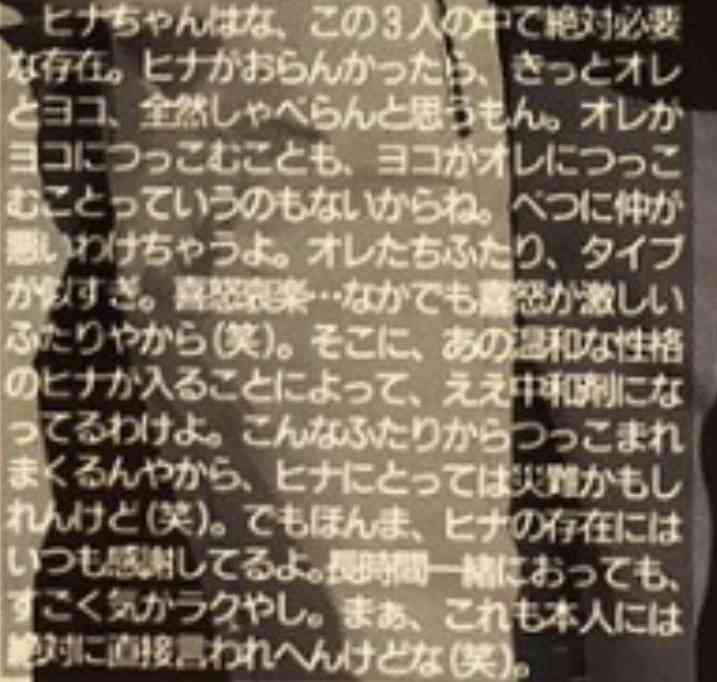 ヒナちゃんはな、この3人の中で絶対必要
な存在。ヒナがおらんかったら、きっとオレ
とヨコ、全然しゃべらんと思うもん。オレが
ヨコにつっこむことも、ヨコがオレにつっこ
むことっていうのもないからね。べつに仲が
悪いわけちゃうよ。オレたちふたり、タイプ
が似すぎ。喜怒哀楽…なかでも喜怒が激しい
ふたりやから(笑)。そこに、あの温和な性格
のヒナが入ることによって、ええ中和剤にな
ってるわけよ。こんなふたりからつっこまれ
まくるんやから、ヒナにとっては災難かもし
れんけど(笑)。でもほんま、ヒナの存在には
いつも感謝してるよ。長時間一緒におっても、
すごく気がラクやし。まぁ、これも本人には
絶対に直接言われへんけどな(笑)。